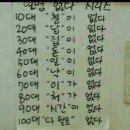 연령별 없다 시리즈
10대 "철"이 없다
20대 "답"이 없다
30대 "집"이 없다
40대 "돈"이 없다
50대 "일"이 없다
60대 "낙"이 없다
70대 "이"이 없다
80대 "처"가 없다
90대 "시간"이 없다
100대 "다 필요" 없다